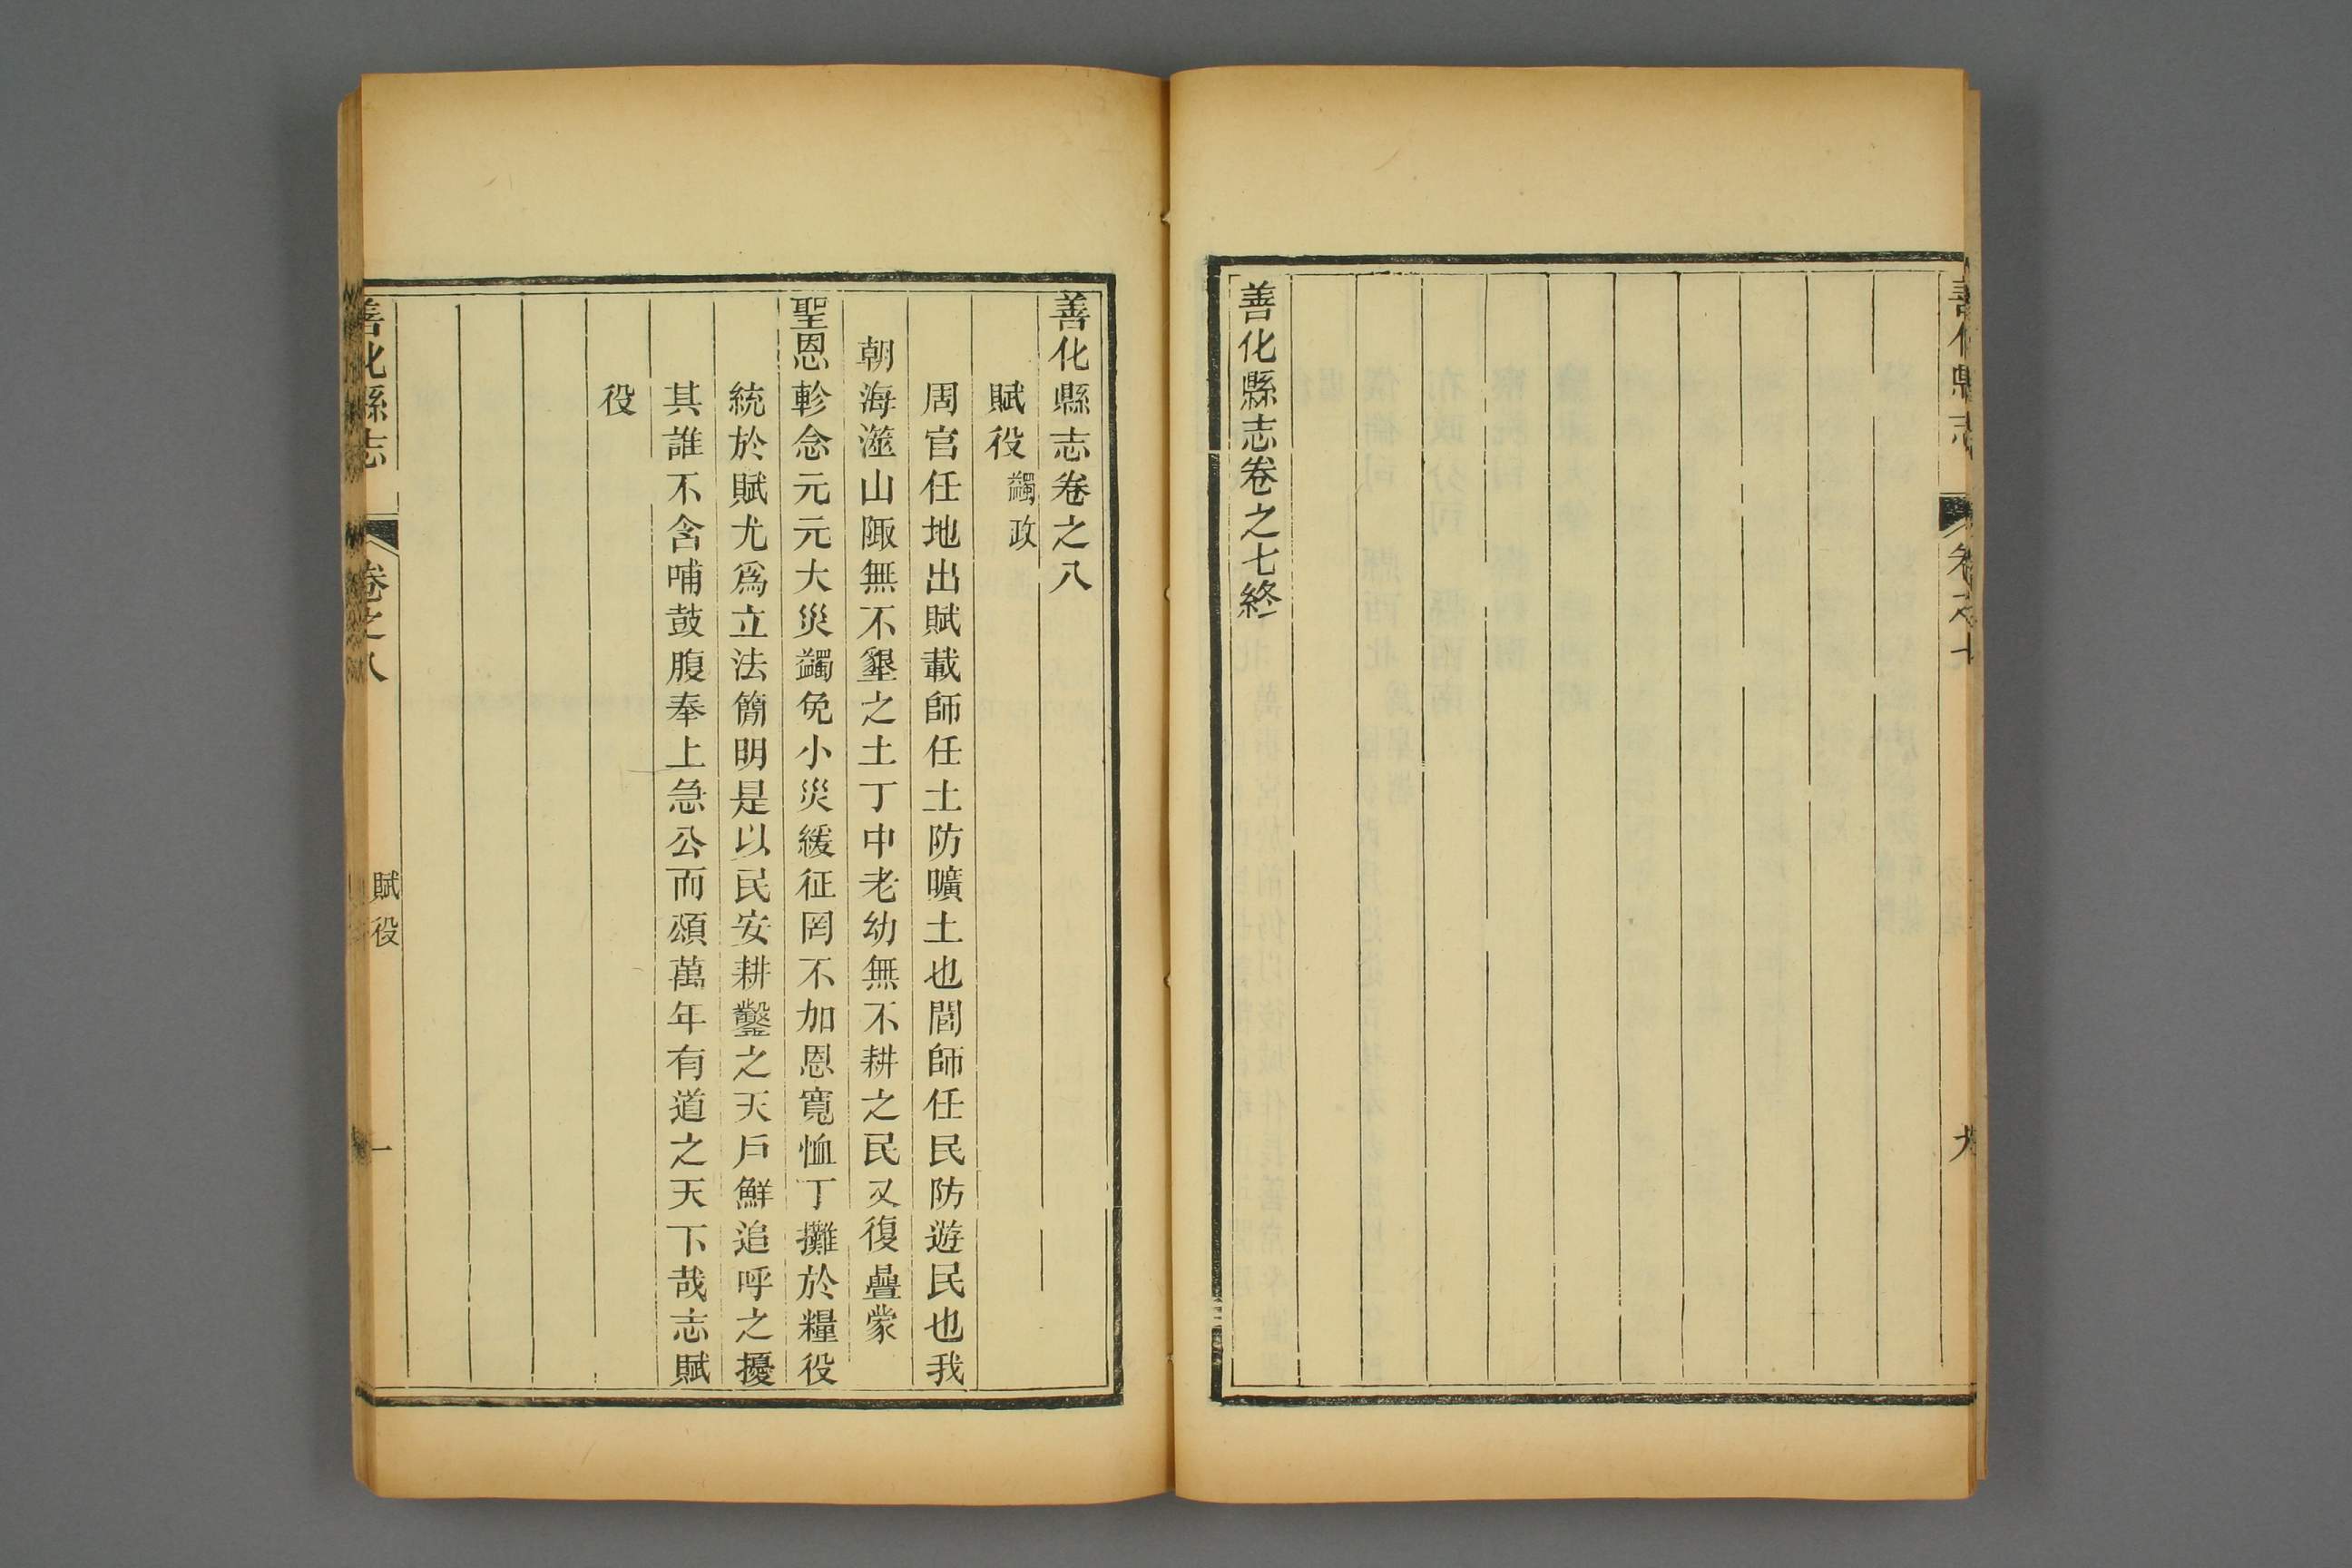 善化縣志卷之七終
善化縣志卷之八
賦役 蠲政
周官任地出賦載師任土防曠土也閭師任民防遊民也我
朝海澨山陬無不墾之土丁中老幼無不耕之民又復疊蒙
聖恩軫念元元大災蠲免小災緩征罔不加恩寬恤丁攤於糧役
統於賦尤爲立法簡明是以民安耕鑿之天戶鮮追呼之擾
其誰不含哺鼓腹奉上急公而頌萬年有道之天下哉志賦
役
善化縣志 卷之八 賦役 一